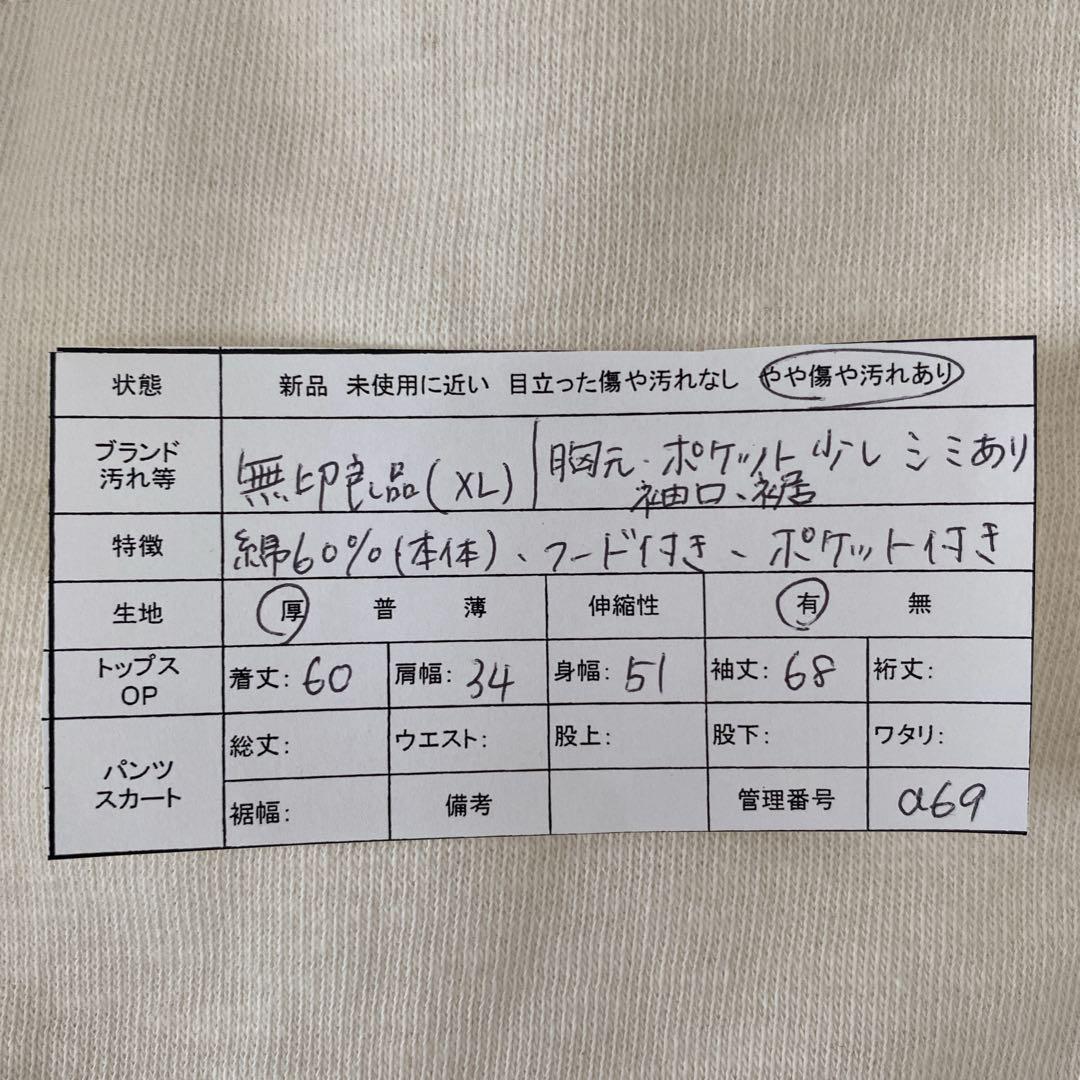 状態 新品 未使用に近い 目立った傷や汚れなし やや傷や汚れあり
ブランド
汚れ等
無印良品(XL)
胸元・ポケット少しシミあり
袖口、裾
特徴 綿60%(本体)、フード付き、ポケット付き
生地 厚 普 薄 伸縮性 有 無
トップス
OP
着丈: 60 肩幅: 34 身幅: 51 袖丈: 68 裄丈:
パンツ
スカート
総丈: ウエスト: 股上: 股下: ワタリ:
裾幅: 備考 管理番号 a69